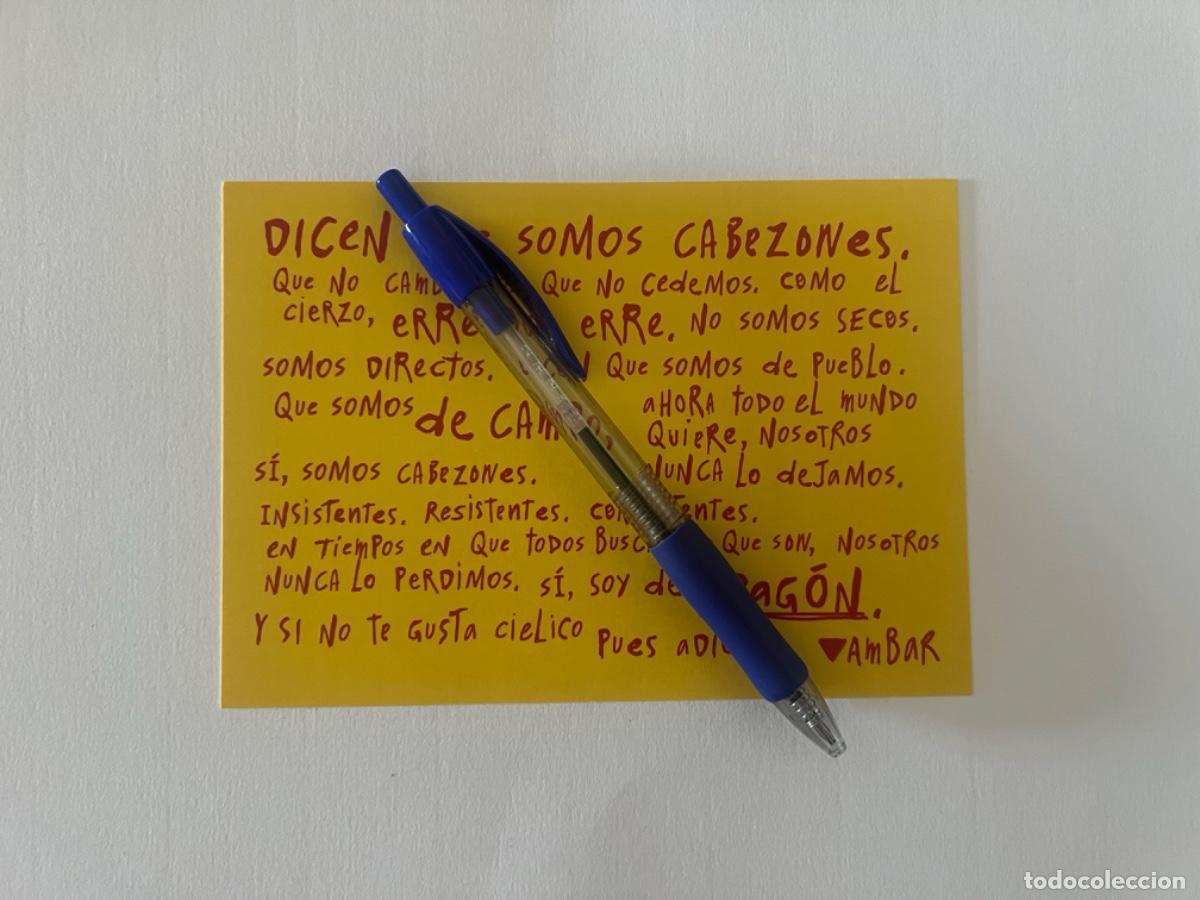 DICEN SOMOS CABEZONES.
QUE NO QUE NO CEDEMOS. COMO EL
CIERZO, ERRE ERRE. NO SOMOS SECOS.
SOMOS DIRECTOS. QUE SOMOS DE PUEBLO.
QUE SOMOS DE CAMPO, AHORA TODO EL MUNDO
QUIERE, NOSOTROS
SÍ, SOMOS CABEZONES. NUNCA LO DEJAMOS.
INSISTENTES. RESISTENTES.
EN TIEMPOS EN QUE TODOS QUE SON, NOSOTROS
NUNCA LO PERDIMOS. SÍ, SOY DE ARAGÓN.
Y SI NO TE GUSTA CIELICO PUES ADIÓS
AMBAR
todocoleccion